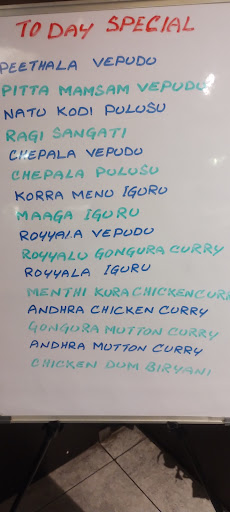 TO DAY SPECIAL
PEETHALA VEPUDU
PITTA MAMSAM VEPUDU
NATU KODI PULUSU
RAGI SANGATI
CHEPALA VEPUDU
CHEPALA PULUSU
KORRA MENU IGURU
MAAGA IGURU
ROYYALA VEPUDU
ROYYALU GONGURA CURRY
ROYYALA IGURU
MENTHI KURA CHICKEN CURR
ANDHRA CHICKEN CURRY
GONGURA MUTTON CURRY
ANDHRA MUTTON CURRY
CHICKEN DUM BIRYANI